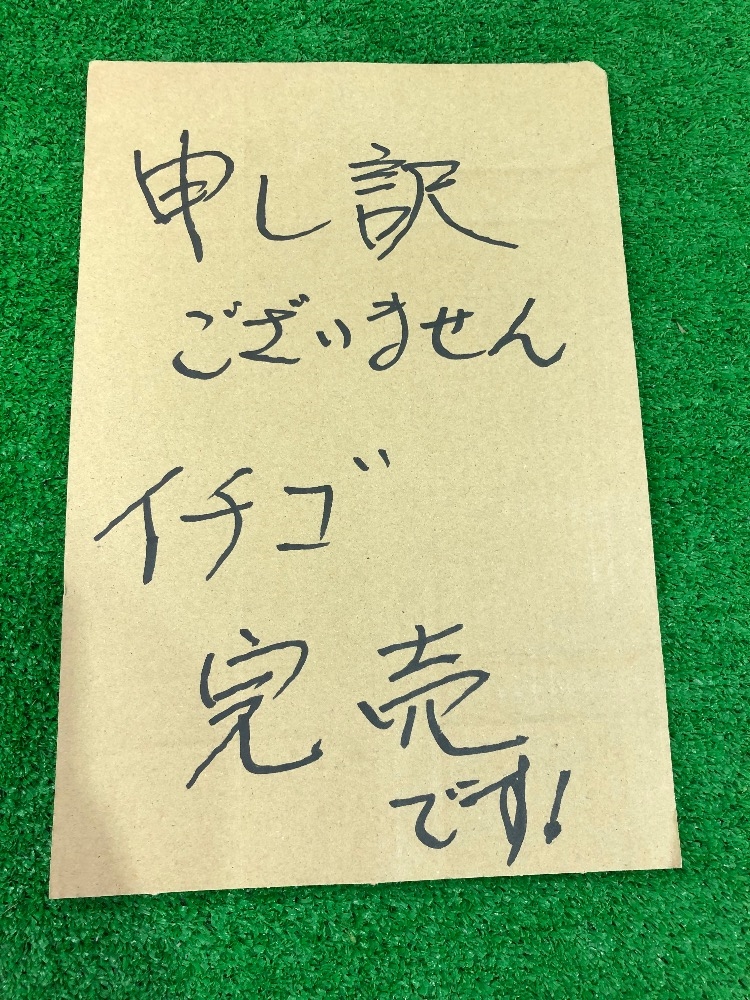 申し訳
ございません
イチゴ
完売
です!